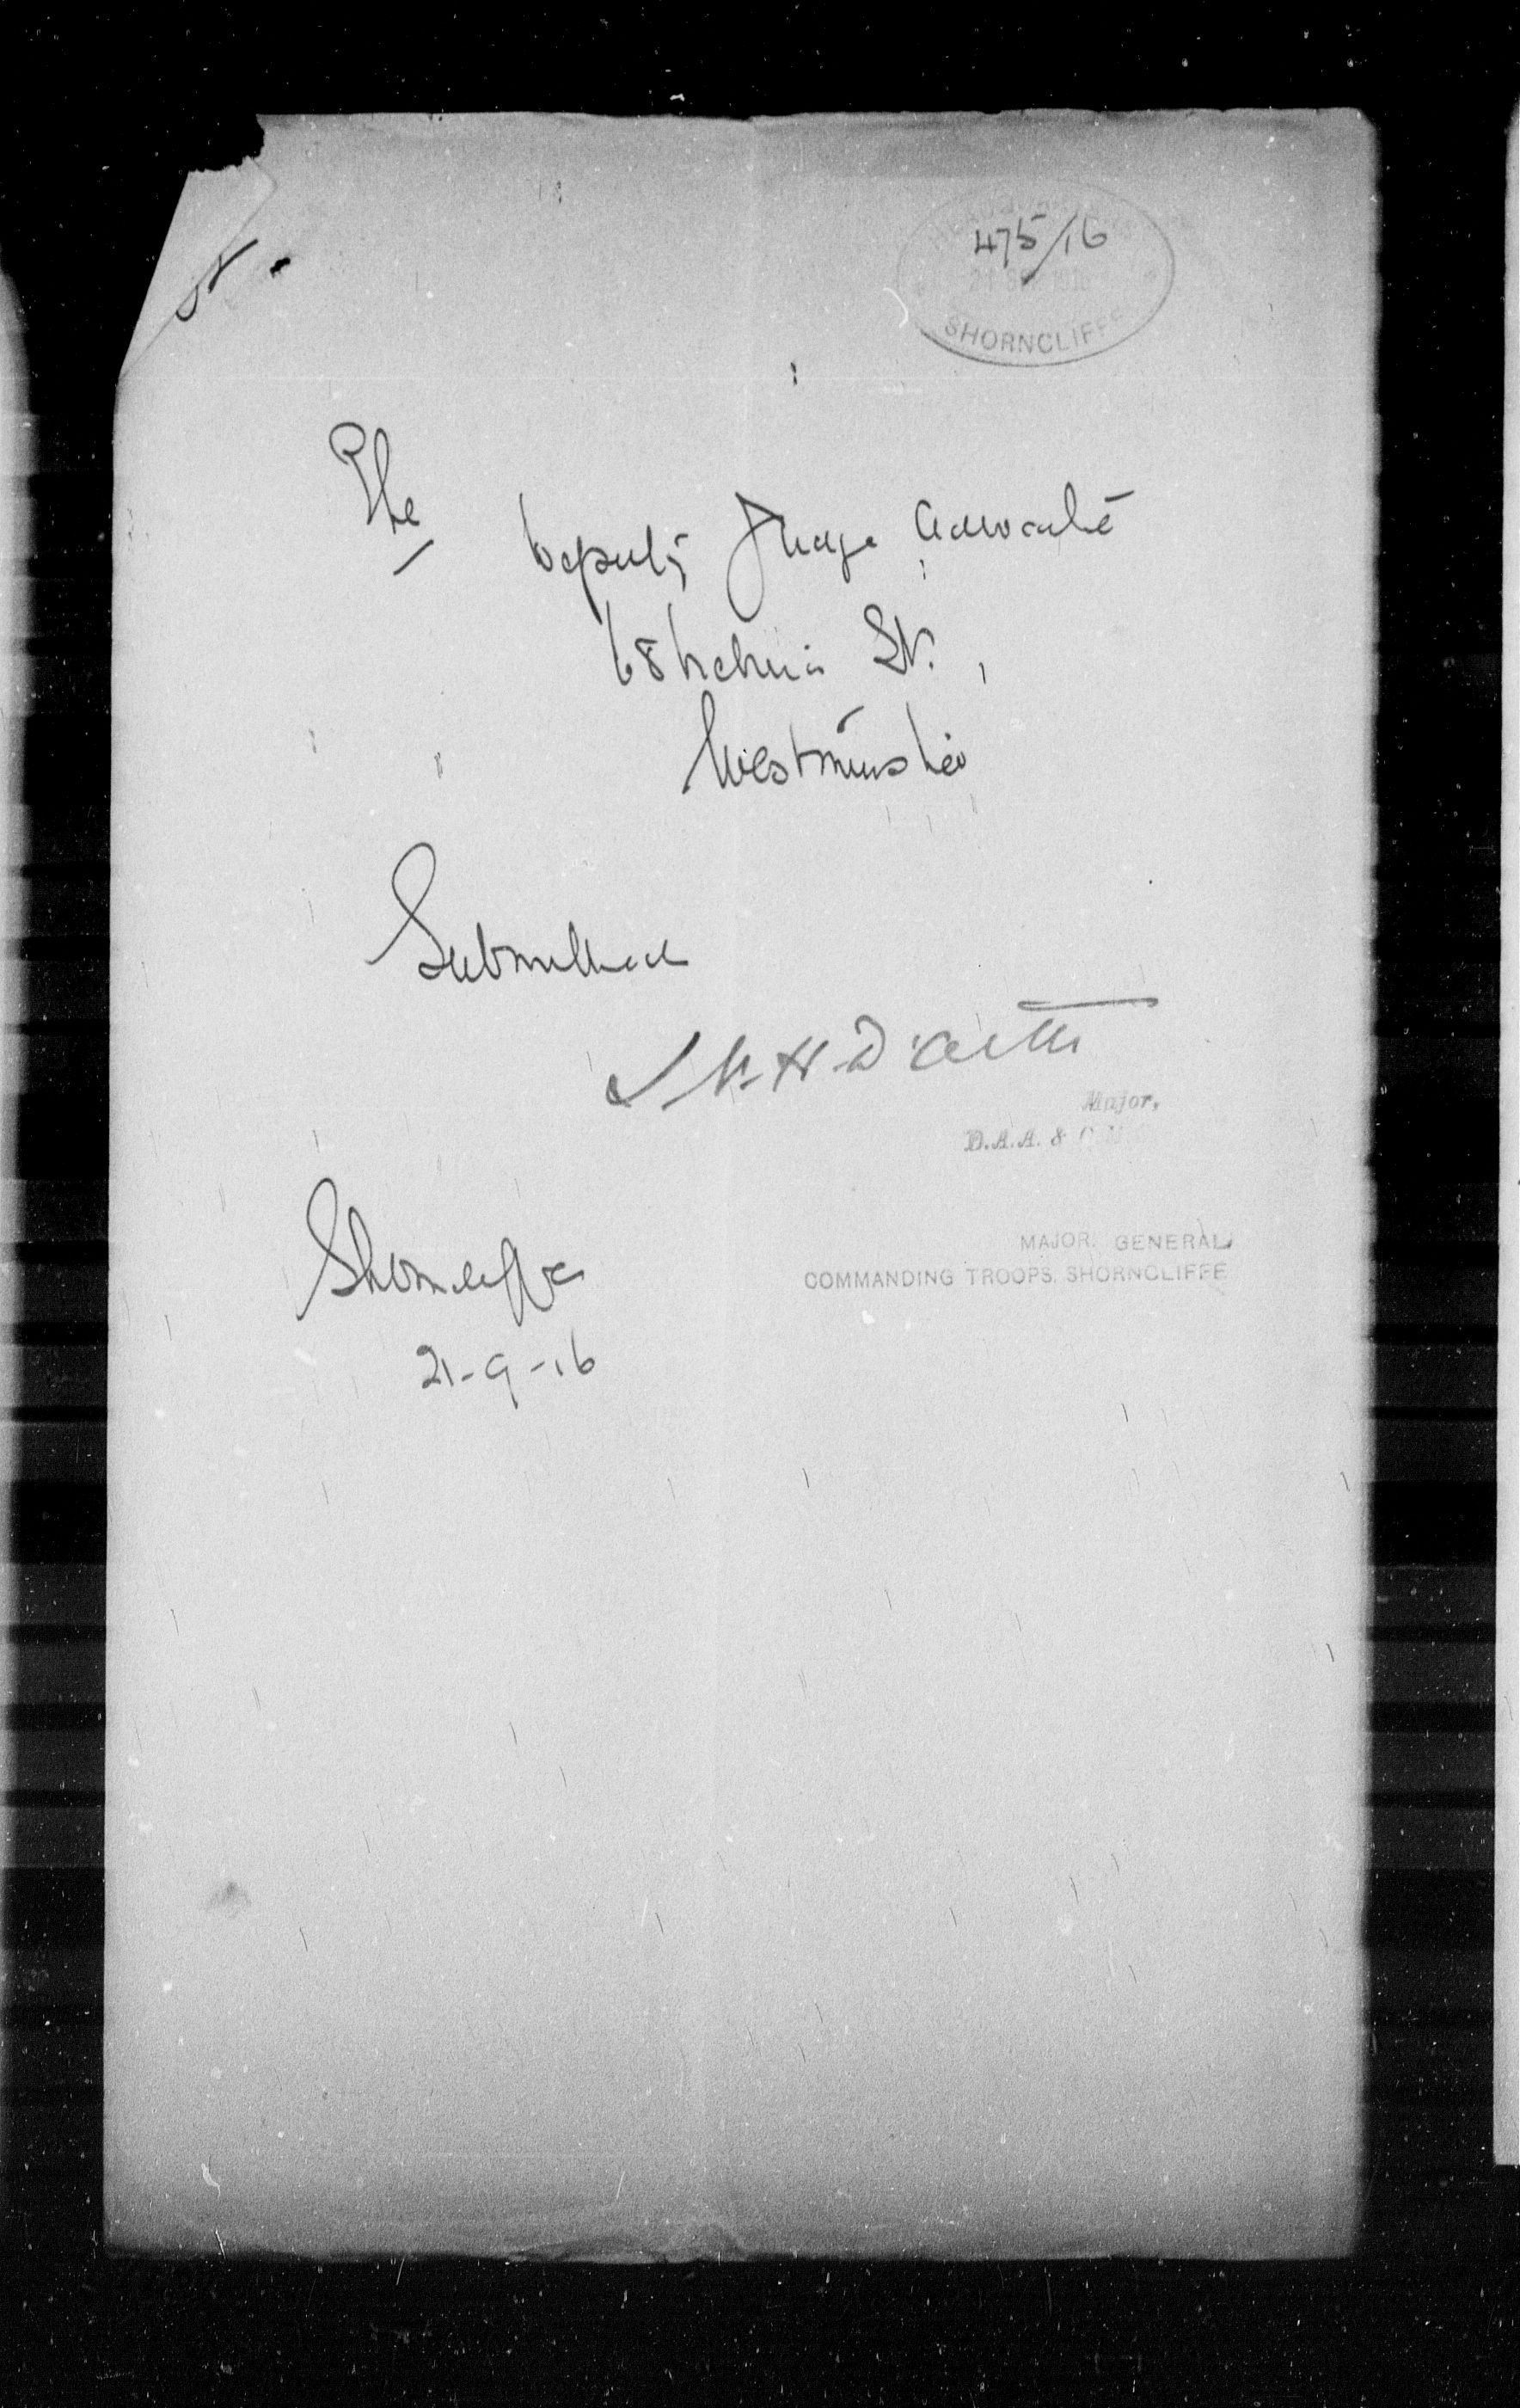 475/16
21 SEP 1916
SHORNCLIFFE
The
Deputy Judge Advocate
68 Victoria St.,
Westminster
Submitted
Major,
D.A.A. &
MAJOR. GENERAL
COMMANDING TROOPS. SHORNCLIFFE
Shorncliffe
21-9-16